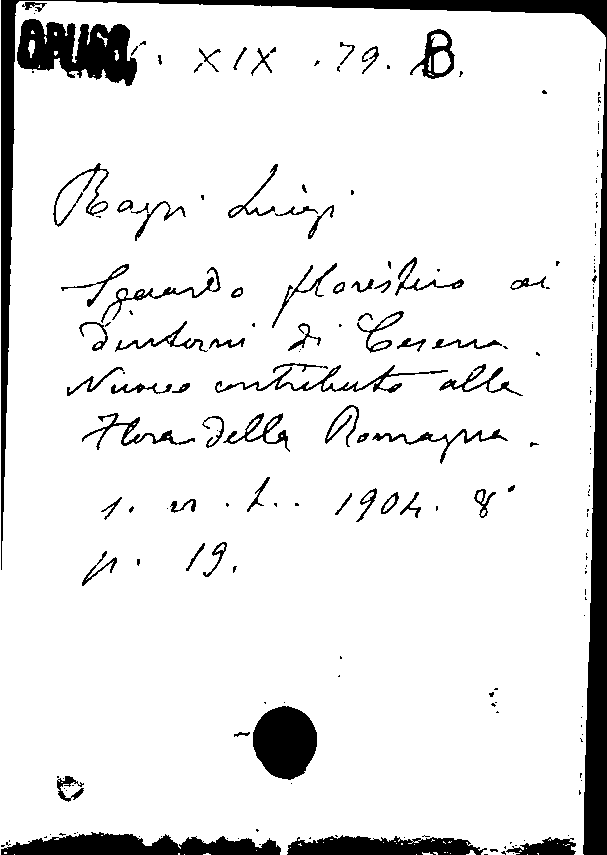 OPUSC. XIX . 79. B.
Bagni Luigi
Sguardo floristico ai
dintorni di Cesena.
Nuovo contributo alla
Flora della Romagna.
s. n. t.. 1904. 8°
p. 19.